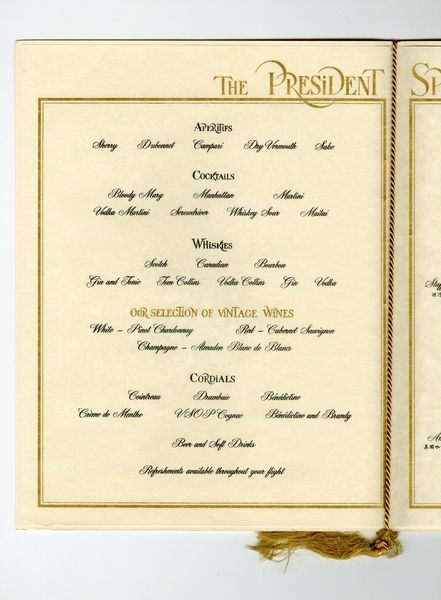 THE PRESIDENT
APERITIFS
Sherry Dubonnet Campari Dry Vermouth Sake
COCKTAILS
Bloody Mary Manhattan Martini
Vodka Martini Screwdriver Whiskey Sour Maitai
WHISKIES
Scotch Canadian Bourbon
Gin and Tonic Tom Collins Vodka Collins Gin Vodka
OUR SELECTION OF VINTAGE WINES
White – Pinot Chardonnay Red – Cabernet Sauvignon
Champagne – Almaden Blanc de Blancs
CORDIALS
Cointreau Drambuie Bénédictine
Crème de Menthe VSOP Cognac Bénédictine and Brandy
Beer and Soft Drinks
Refreshments available throughout your flight